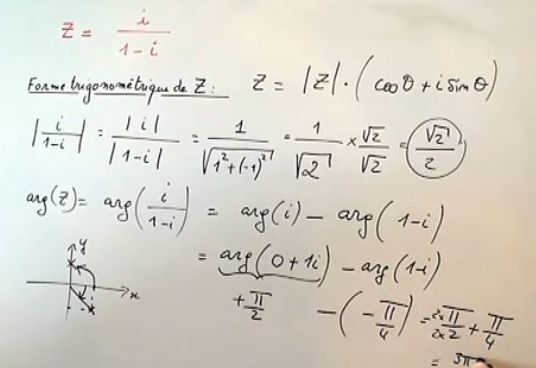 Z = i / (1-i)
Forme trigonométrique de Z : Z = |Z| · (cos θ + i sin θ)
|i/(1-i)| = |i| / |1-i| = 1/√(1²+(-1)²) = 1/√2 × √2/√2 = √2/2
arg(Z) = arg(i/(1-i)) = arg(i) - arg(1-i)
= arg(0+1i) - arg(1-i)
y
x
+π/2 -(-π/4) = 2×π/2×2 + π/4
= 3π